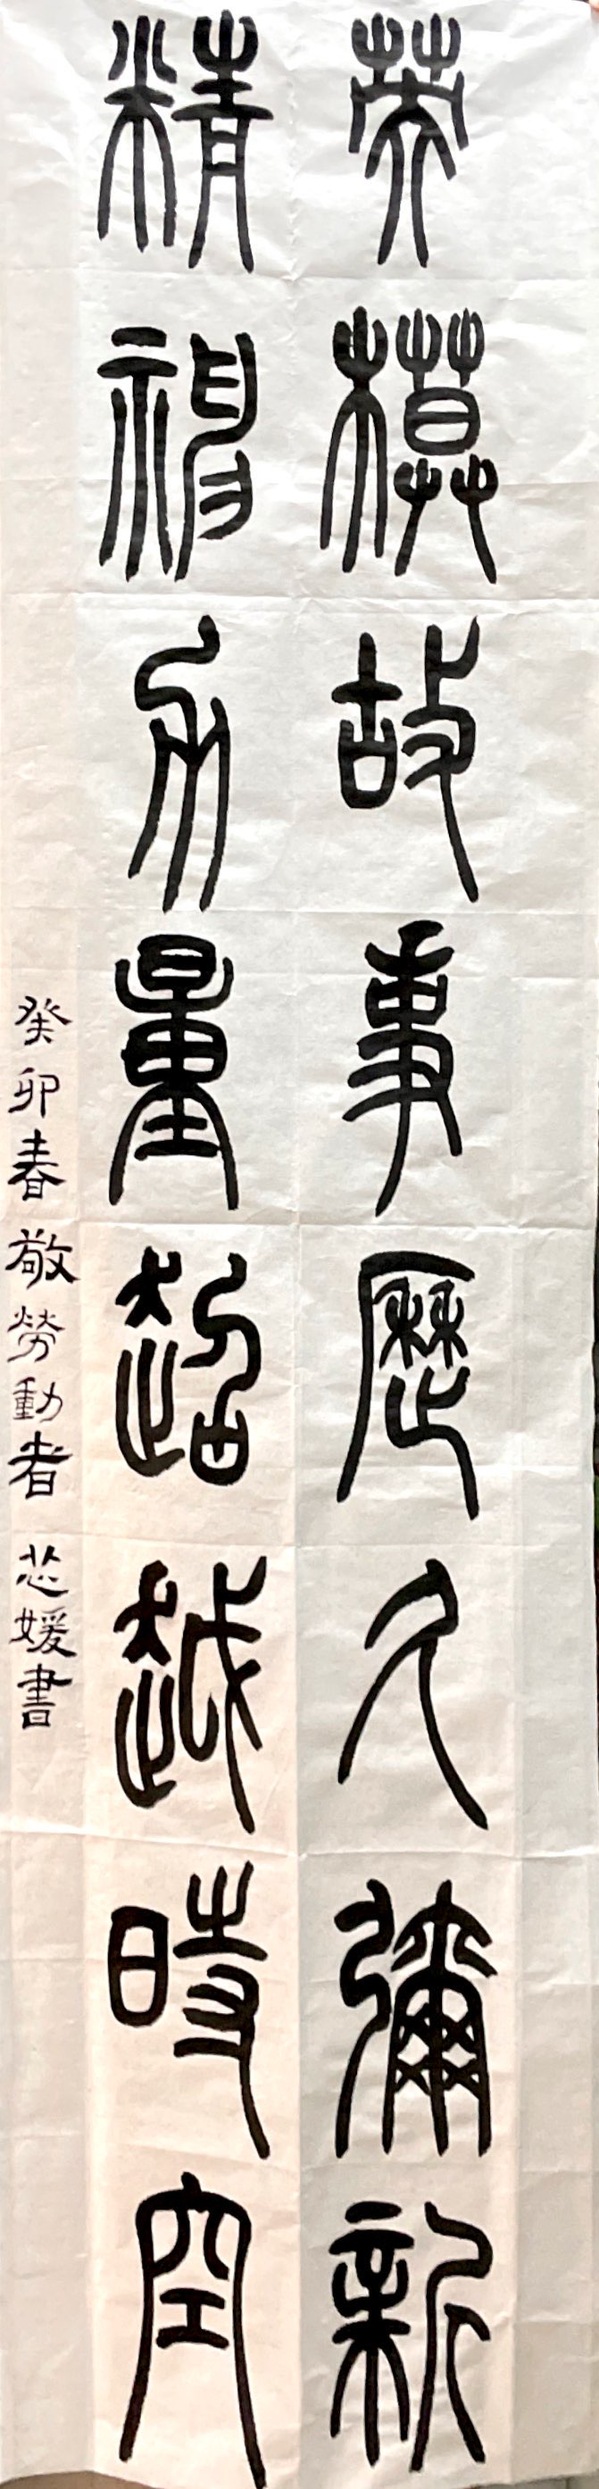 英模故事歷久彌新
精神力量超越時空
癸卯春敬勞動者 芯媛書